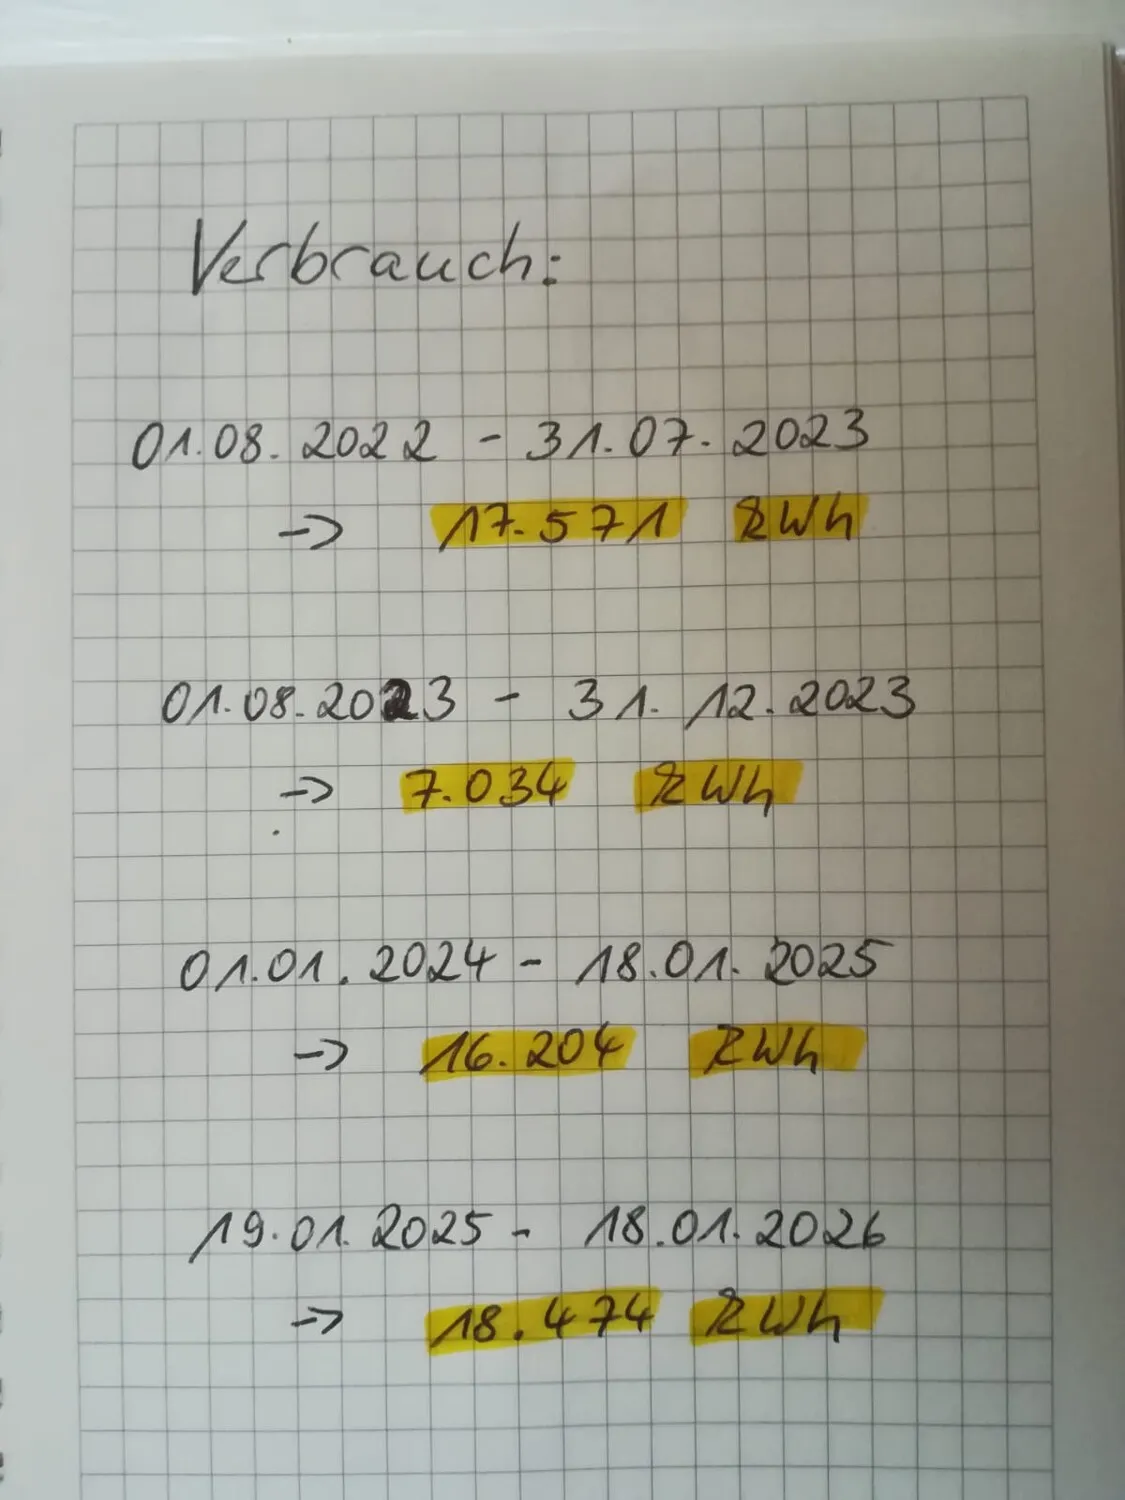 Verbrauch:
01.08.2022 - 31.07.2023
-> 17.571 kWh
01.08.2023 - 31.12.2023
-> 7.034 kWh
01.01.2024 - 18.01.2025
-> 16.204 kWh
19.01.2025 - 18.01.2026
-> 18.474 kWh